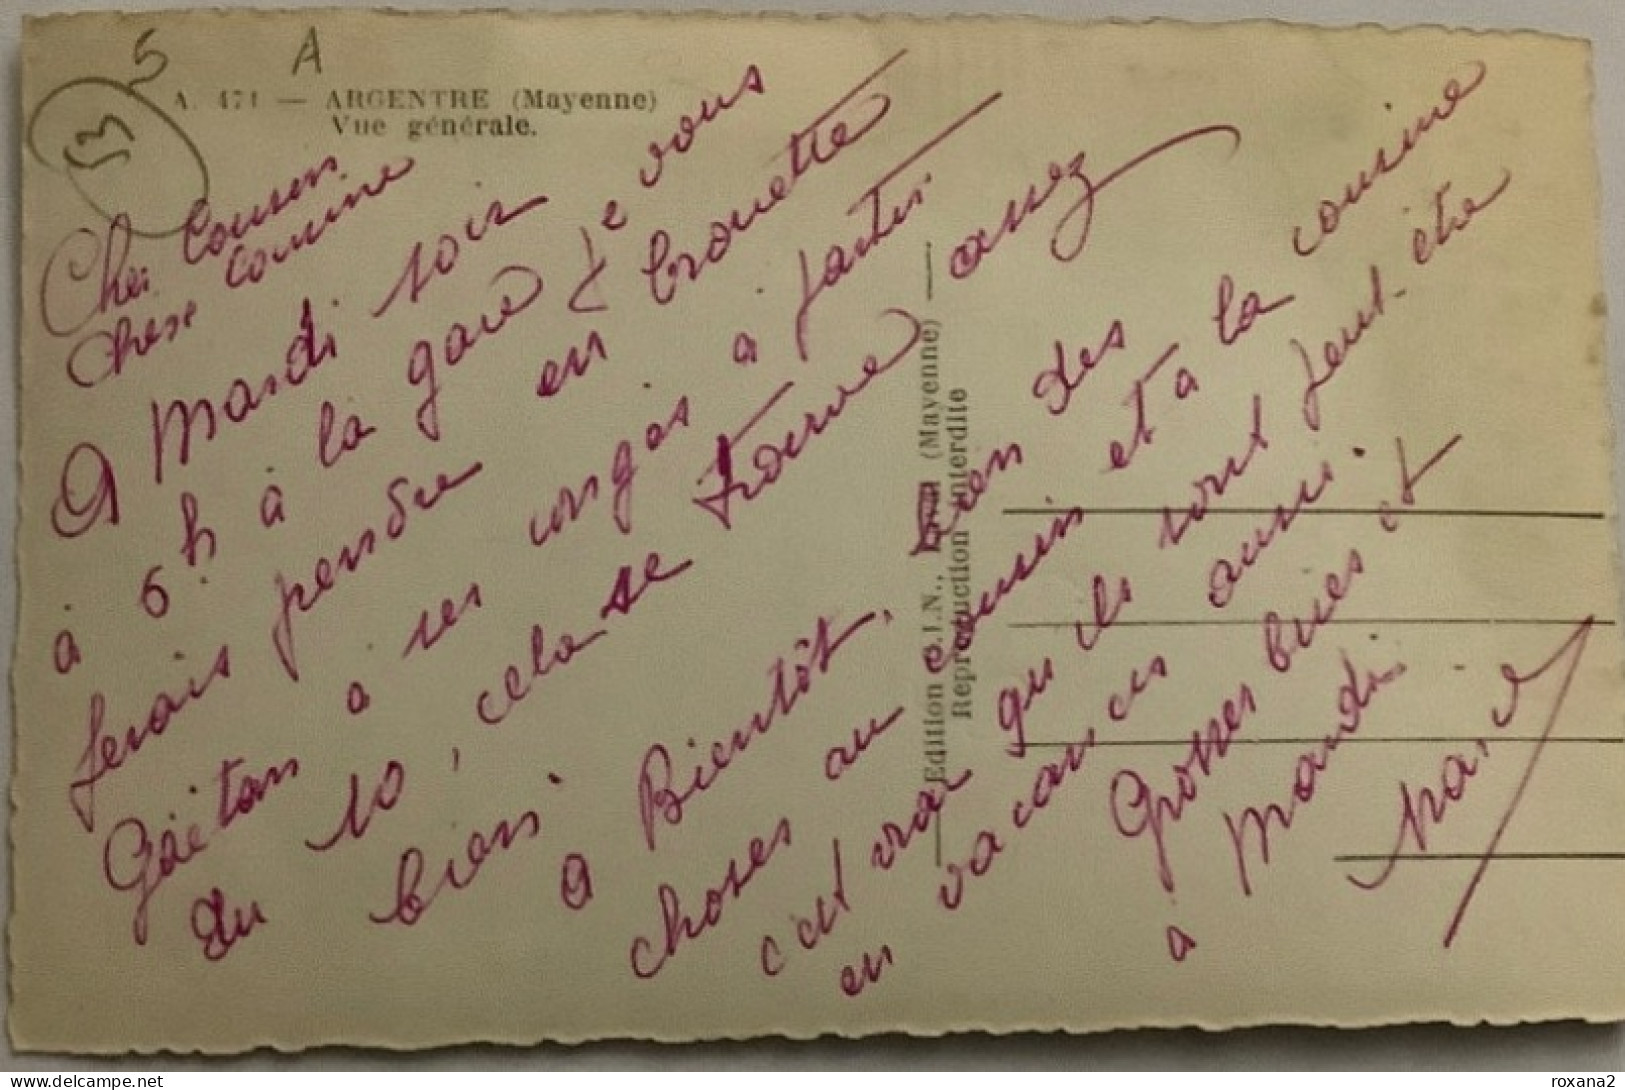 5 A
53
A. 471 — ARGENTRE (Mayenne)
Vue générale.
Cher Cousin
Chère Cousine
A Mardi soir
à 6h à la gare je vous
ferais pendre en brouette
Gaétan a ses congés à partir
du 10, cela se trouve assez
bien.
A Bientôt, bien des
choses au cousin et à la cousine
c'est vrai qu'ils sont peut-être
en vacances aussi.
Grosses bises et
à Mardi
Edition C.I.N., (Mayenne)
Reproduction interdite
www.delcampe.net
roxana2